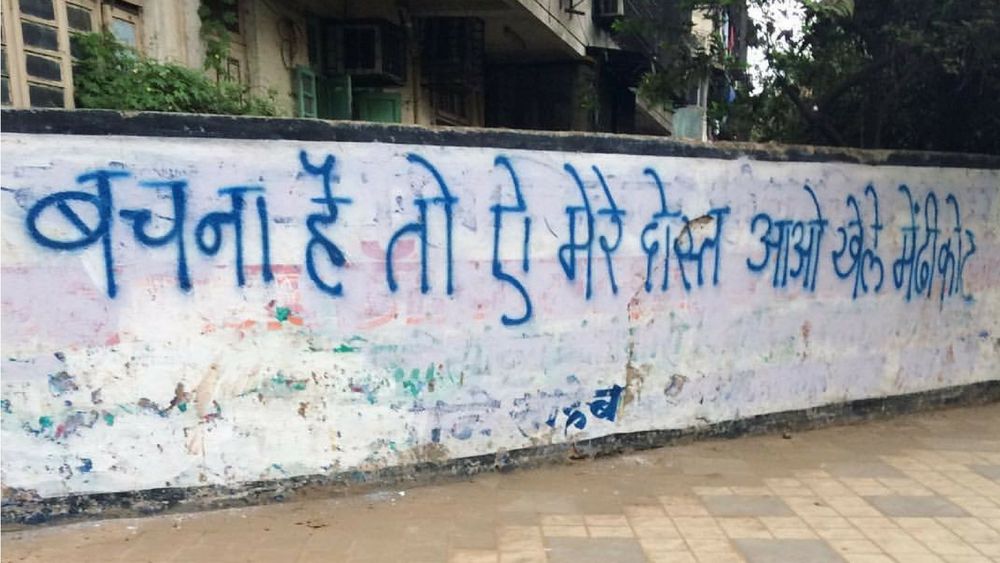 बचना है तो ऐ मेरे दोस्त आओ खेले मेंढीकोट